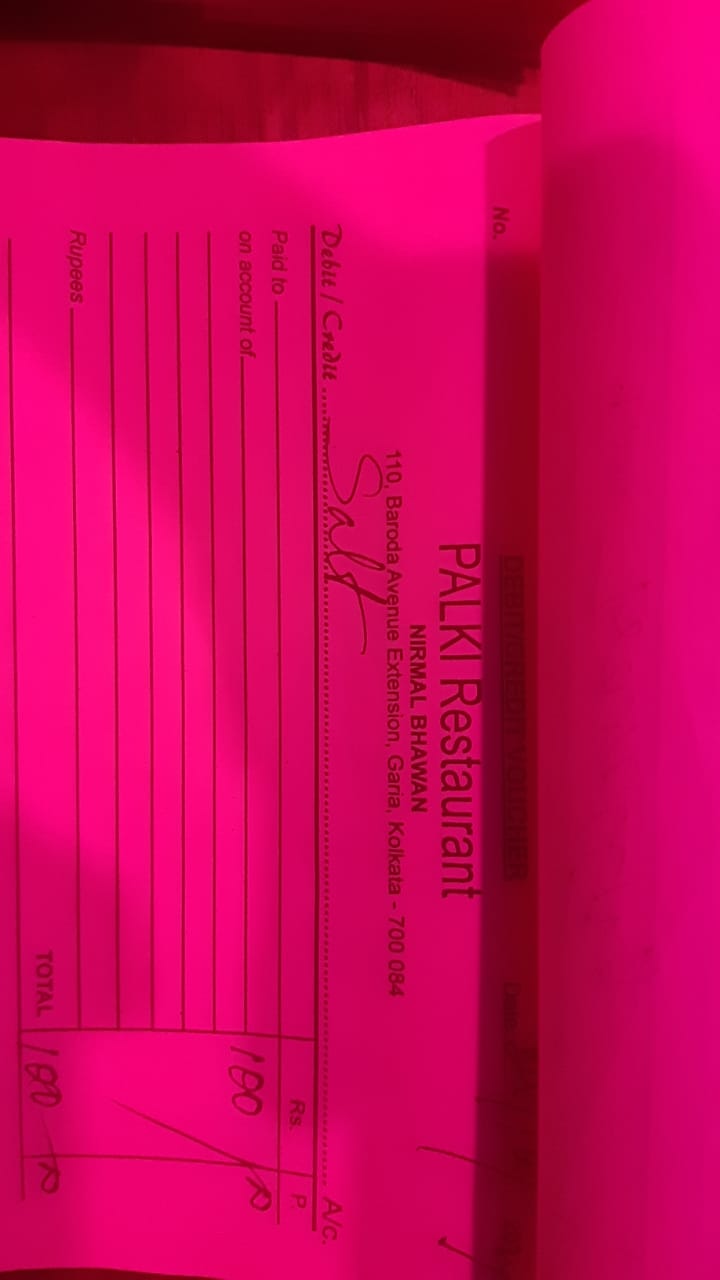 No.
DEBIT/CREDIT VOUCHER
Date
PALKI Restaurant
NIRMAL BHAWAN
110, Baroda Avenue Extension, Garia, Kolkata - 700 084
Salt
Debit / Credit A/c.
Paid to Rs. P.
on account of 100
Rupees
TOTAL 100